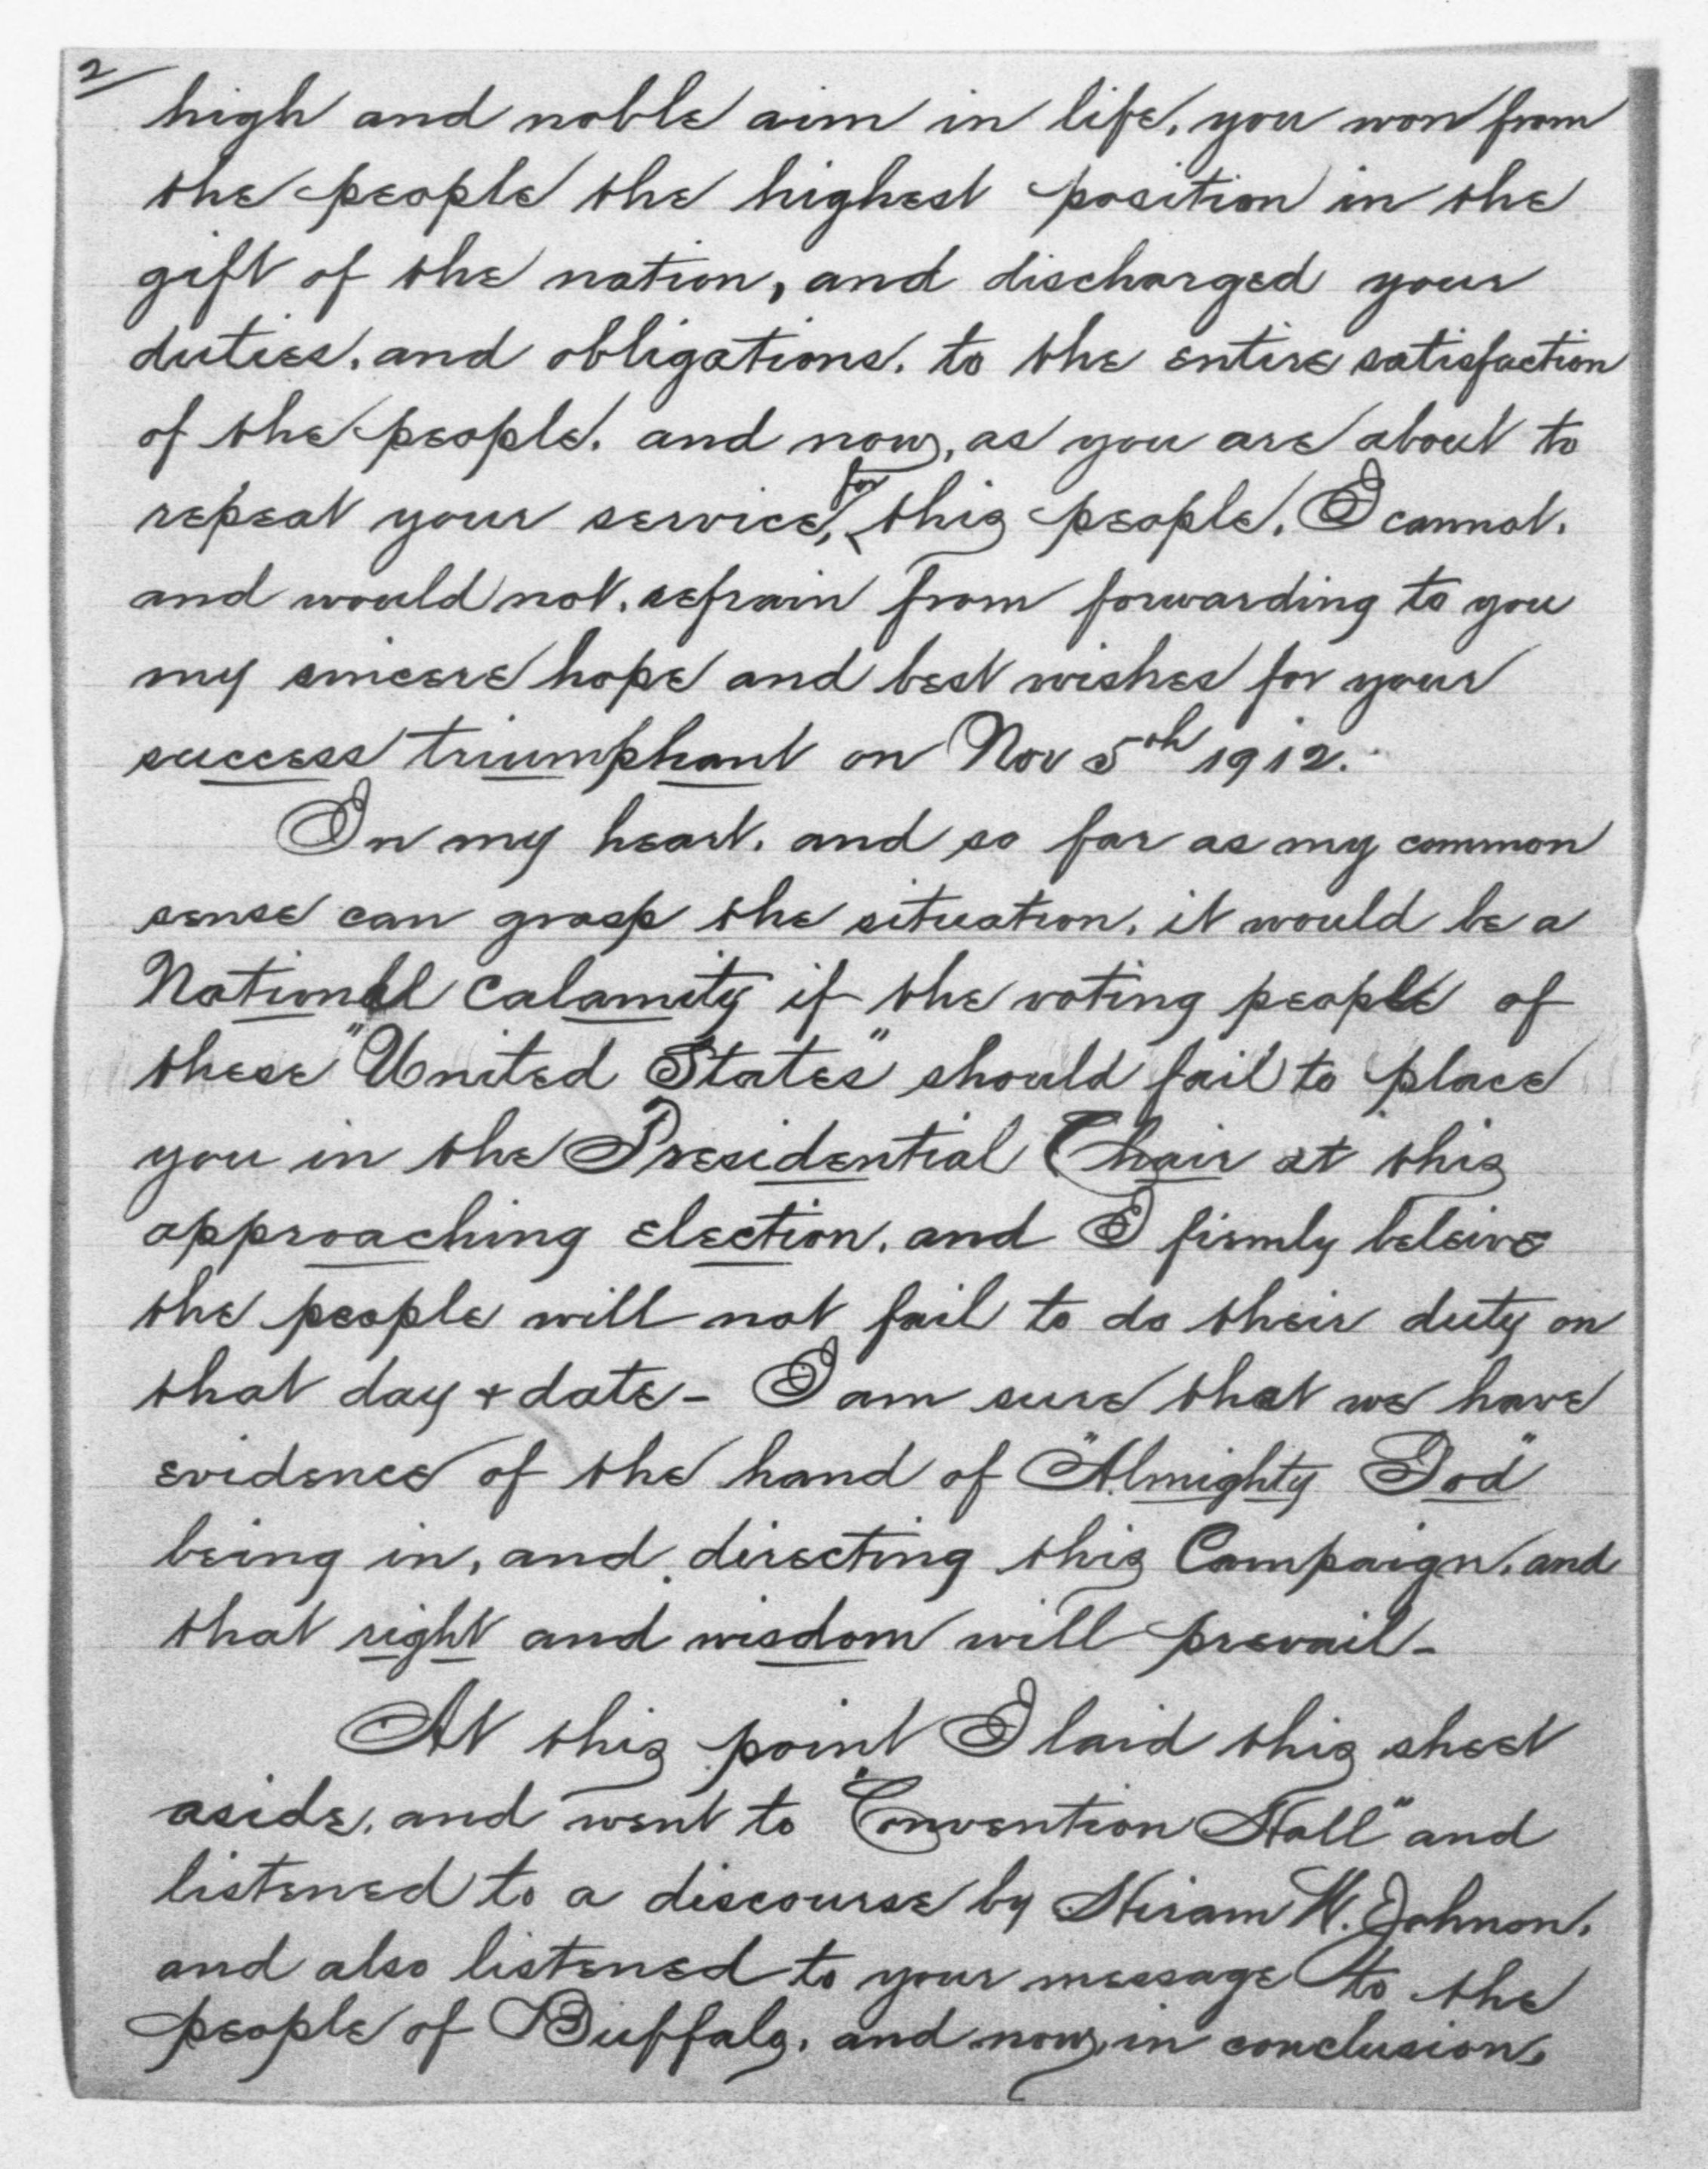 2
high and noble aim in life, you won from
the people the highest position in the
gift of the nation, and discharged your
duties, and obligations, to the entire satisfaction
of the people, and now, as you are about to
repeat your service, for this people, I cannot,
and would not, refrain from forwarding to you
my sincere hope and best wishes for your
success triumphant on Nov 5th 1912.
In my heart, and so far as my common
sense can grasp the situation, it would be a
National Calamity if the voting people of
these "United States" should fail to place
you in the Presidential Chair at this
approaching election, and I firmly beleive
the people will not fail to do their duty on
that day + date - I am sure that we have
evidence of the hand of "Almighty God"
being in, and directing this Campaign, and
that right and wisdom will prevail -
At this point I laid this sheet
aside, and went to "Convention Hall" and
listened to a discourse by Hiram W. Johnson,
and also listened to your message to the
people of Buffalo, and now, in conclusion,